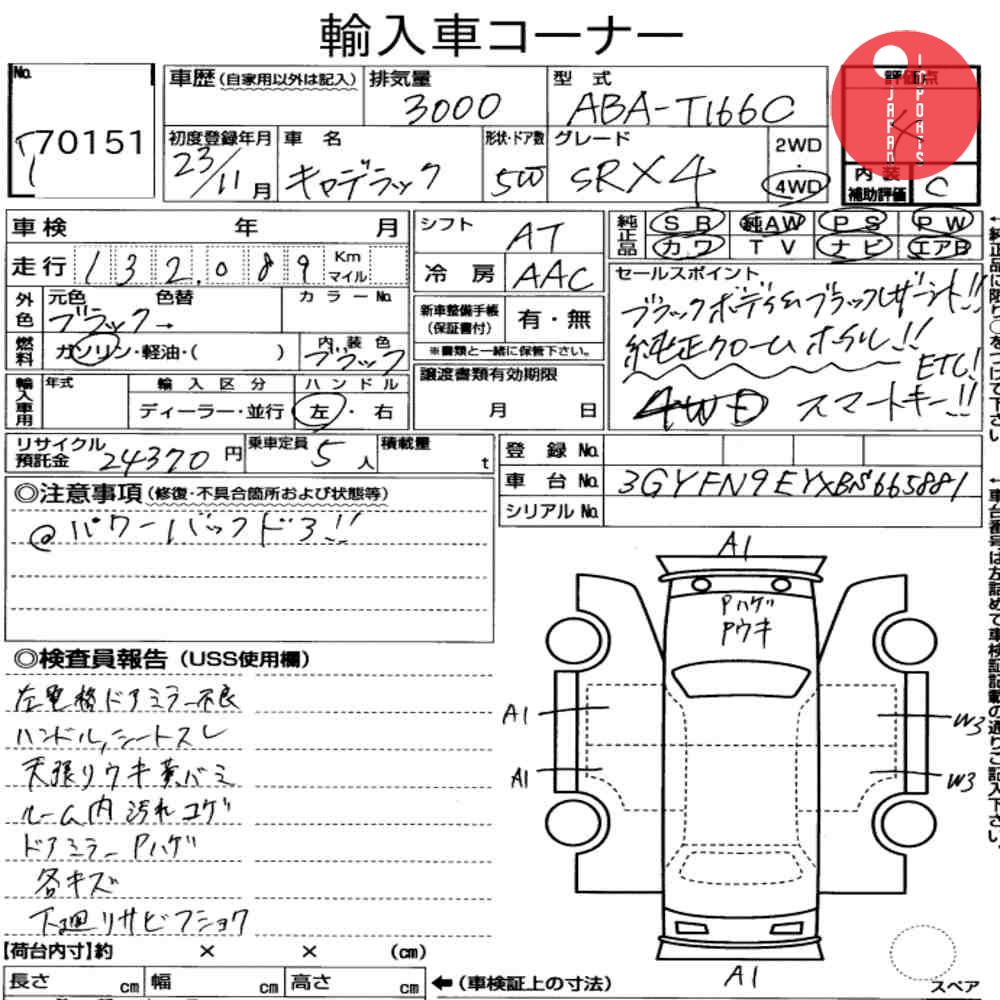 輸入車コーナー
No.
70151
車歴 (自家用以外は記入)
排気量
3000
型式
ABA-T166C
評価点
JAPAN
IMPORTS
初度登録年月
23/11月
車名
キャデラック
形状・ドア数
5W
グレード
SRX4
2WD
・
4WD
内装
補助評価
C
車検 年 月
シフト
AT
純正品
SR 純AW PS PW
カワ TV ナビ エアB
走行 132,089 Km
マイル
冷房 AAC
セールスポイント
ブラックボディ&ブラックレザーシート!!
純正クロームホイール!!
ETC!
4WD スマートキー!!
外色
元色 色替 カラーNo.
ブラック→
新車整備手帳
(保証書付)
有・無
※書類と一緒に保管下さい。
燃料
ガソリン・軽油・( )
内装色
ブラック
輸入車用
年式
輸入区分
ハンドル
ディーラー・並行
左・右
譲渡書類有効期限
月 日
リサイクル
預託金
24370円
乗車定員
5人
積載量
t
登録No.
車台No. 3GYFN9EYXBS665881
シリアルNo.
◎注意事項 (修復・不具合箇所および状態等)
@パワーバックドア!!
◎検査員報告 (USS使用欄)
左電格ドアミラー不良
ハンドル,シートスレ
天張りウキ黄バミ
ルーム内汚れコゲ
ドアミラーPハゲ
各キズ
下廻りサビフショク
A1
Pハゲ
Pウキ
A1
W3
A1
W3
A1
スペア
【荷台内寸】約 × × (cm)
長さ cm 幅 cm 高さ cm
←(車検証上の寸法)
←純正品に限り○をつけて下さい
←車台番号は左詰めで車検証記載の通りご記入下さい。